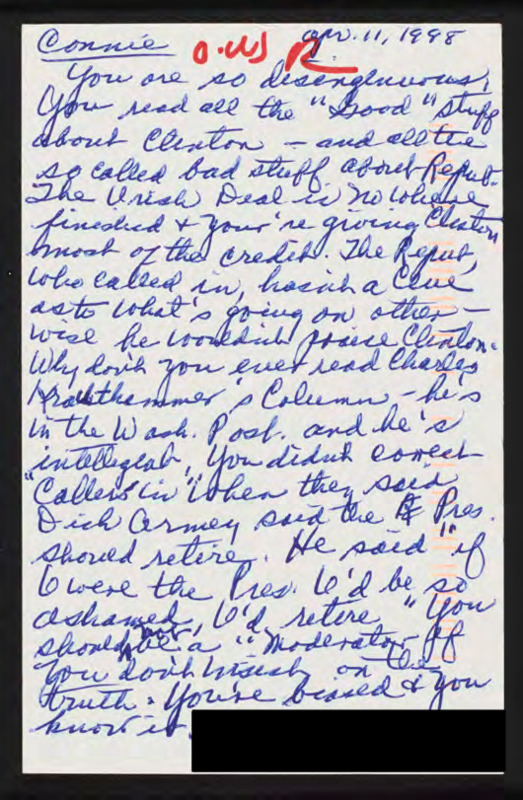 Connie O.W) R Apr. 11, 1998
You are so disengenuous,
You read all the "Good" stuff
about Clinton — and all the
so called bad stuff about Repub.
The Irish Deal is no where
finished & your're giving Clinton
most of the credit. The Repub,
who called in, hasn't a clue
as to what's going on other-
wise he wouldn't praise Clinton.
Why don't you ever read Charles
Krauthammer's Column — he's
in the Wash. Post. and he's
intelligent, You didn't correct
"Callers in" when they said
Dick Armey said the Pres.
should retire. He said "if
I were the Pres. I'd be so
ashamed, I'd retire "You
should not be a "moderator" if
you don't insist on the
truth. You're biased & you
know it.